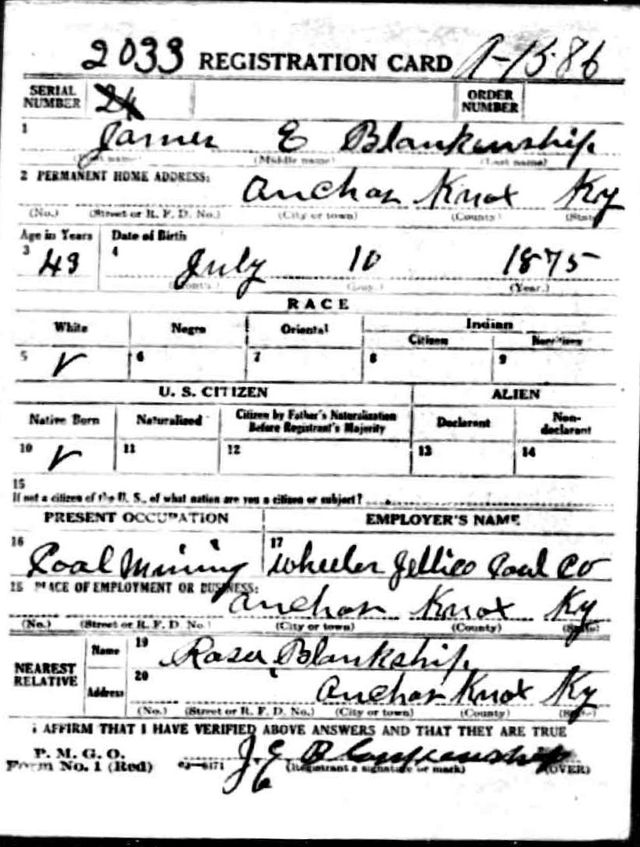 2033 REGISTRATION CARD A-1586
SERIAL NUMBER 24 ORDER NUMBER
1 James E Blankenship
(First name) (Middle name) (Last name)
2 PERMANENT HOME ADDRESS:
Anchor Knox Ky
(No.) (Street or R. F. D. No.) (City or town) (County) (State)
Age in Years Date of Birth
3 43 4 July 10 1875
(Month.) (Day.) (Year.)
RACE
White Negro Oriental Indian
Citizen Noncitizen
5 ✓ 6 7 8 9
U. S. CITIZEN ALIEN
Native Born Naturalized Citizen by Father's Naturalization Before Registrant's Majority Declarant Non-declarant
10 ✓ 11 12 13 14
15
If not a citizen of the U. S., of what nation are you a citizen or subject?
PRESENT OCCUPATION EMPLOYER'S NAME
16 Coal Mining 17 Wheeler Jellico Coal Co
18 PLACE OF EMPLOYMENT OR BUSINESS:
Anchor Knox Ky
(No.) (Street or R. F. D. No.) (City or town) (County) (State)
NEAREST RELATIVE Name 19 Blankship
Address 20 Anchor Knox Ky
(No.) (Street or R. F. D. No.) (City or town) (County) (State)
I AFFIRM THAT I HAVE VERIFIED ABOVE ANSWERS AND THAT THEY ARE TRUE
P. M. G. O.
Form No. 1 (Red) J E Blankenship
(Registrant's signature or mark) (OVER)